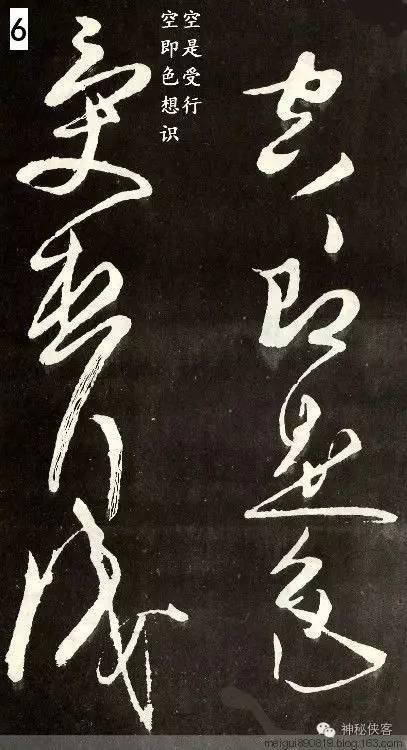 6
空々即是色
空是受行
空即色想识
受想行識
神秘侠客
meigui890819.blog.163.com